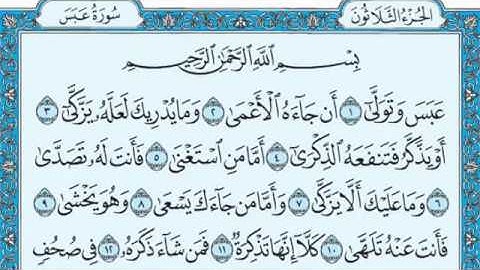 الجُزْءُ الثَّلَاثُونَ سُورَةُ عَبَسَ
بِسْمِ اللَّهِ الرَّحْمَٰنِ الرَّحِيمِ
عَبَسَ وَتَوَلَّىٰٓ ١ أَن جَآءَهُ ٱلْأَعْمَىٰ ٢ وَمَا يُدْرِيكَ لَعَلَّهُۥ يَزَّكَّىٰٓ ٣
أَوْ يَذَّكَّرُ فَتَنفَعَهُ ٱلذِّكْرَىٰٓ ٤ أَمَّا مَنِ ٱسْتَغْنَىٰ ٥ فَأَنتَ لَهُۥ تَصَدَّىٰ
٦ وَمَا عَلَيْكَ أَلَّا يَزَّكَّىٰ ٧ وَأَمَّا مَن جَآءَكَ يَسْعَىٰ ٨ وَهُوَ يَخْشَىٰ ٩
فَأَنتَ عَنْهُ تَلَهَّىٰ ١٠ كَلَّآ إِنَّهَا تَذْكِرَةٌ ١١ فَمَن شَآءَ ذَكَرَهُۥ ١٢ فِى صُحُفٍ